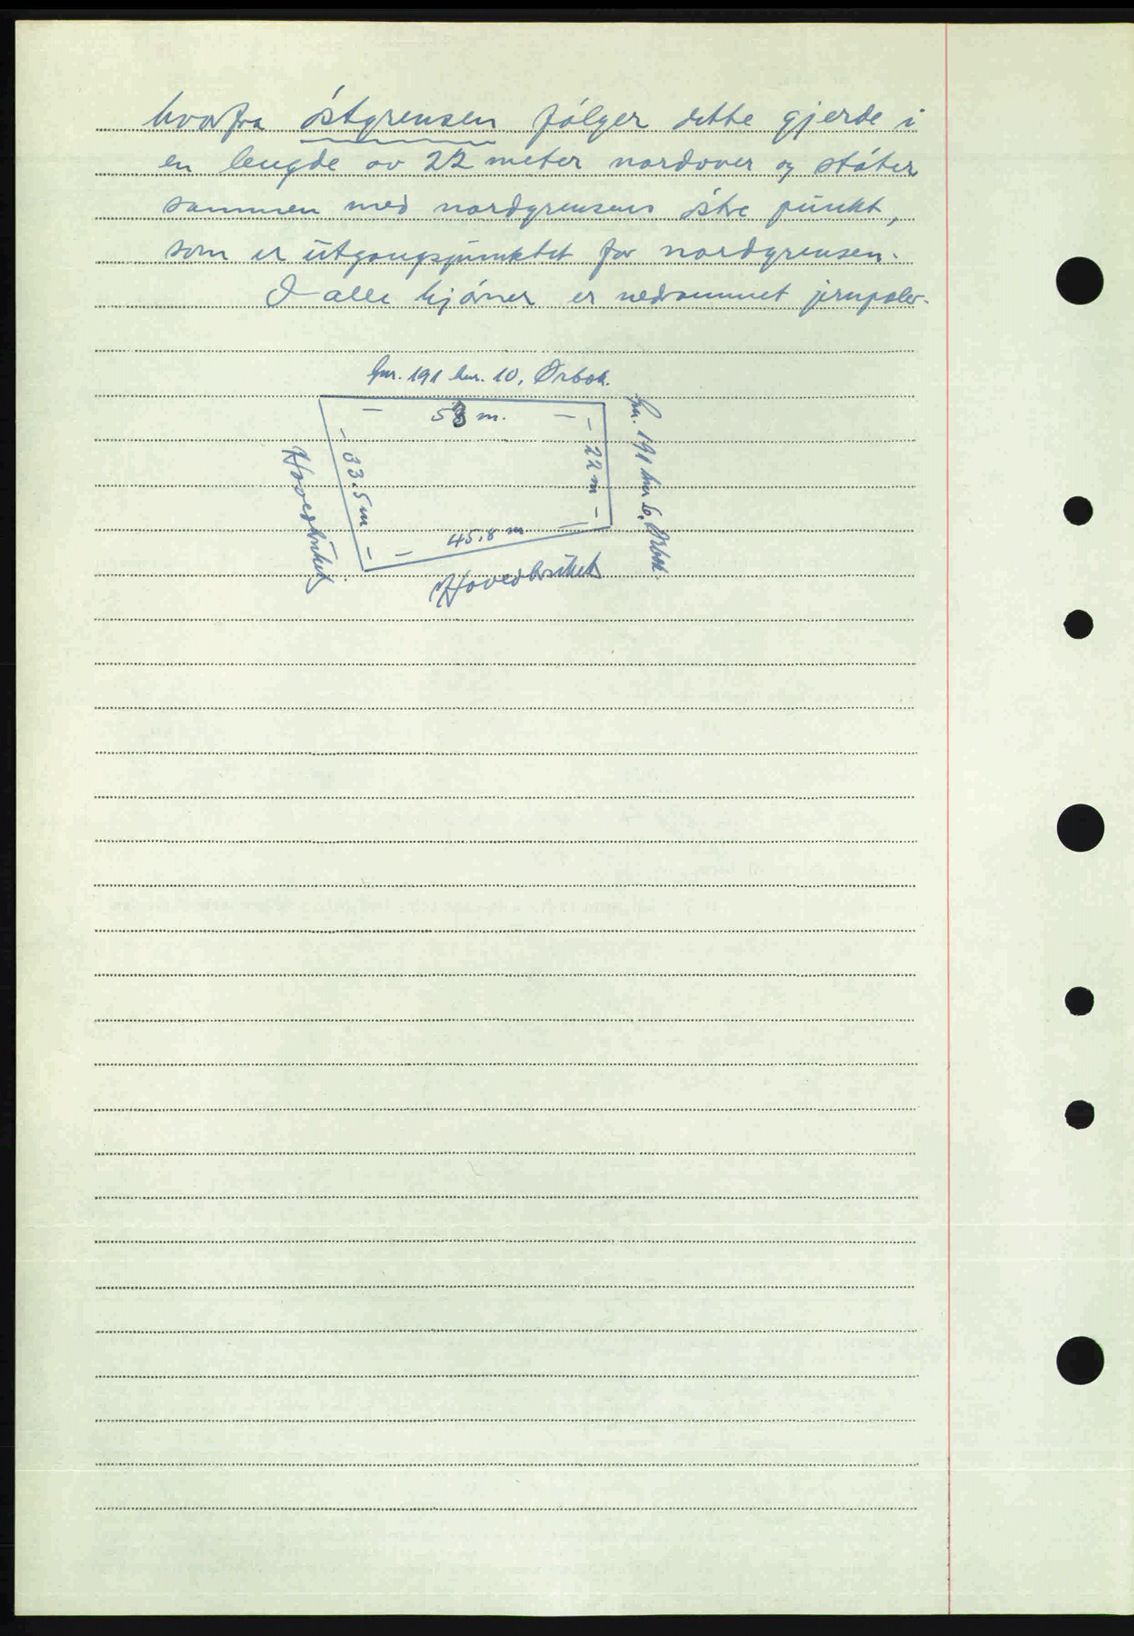 hvorfra östgrensen fölger dette gjerde i
en lengde av 22 meter nordover og stöter
sammen med nordgrensens östre punkt,
som er utgangspunktet for nordgrensen.
I alle hjörner er nedrammet jernpeler.
Gnr. 191 bnr. 10, Ørbok.
— 53 m. —
— 22 m —
Gnr. 191 bnr 6, Ørbok.
— 33.5 m —
Hovedbruket
— 45.8 m —
Hovedbruket